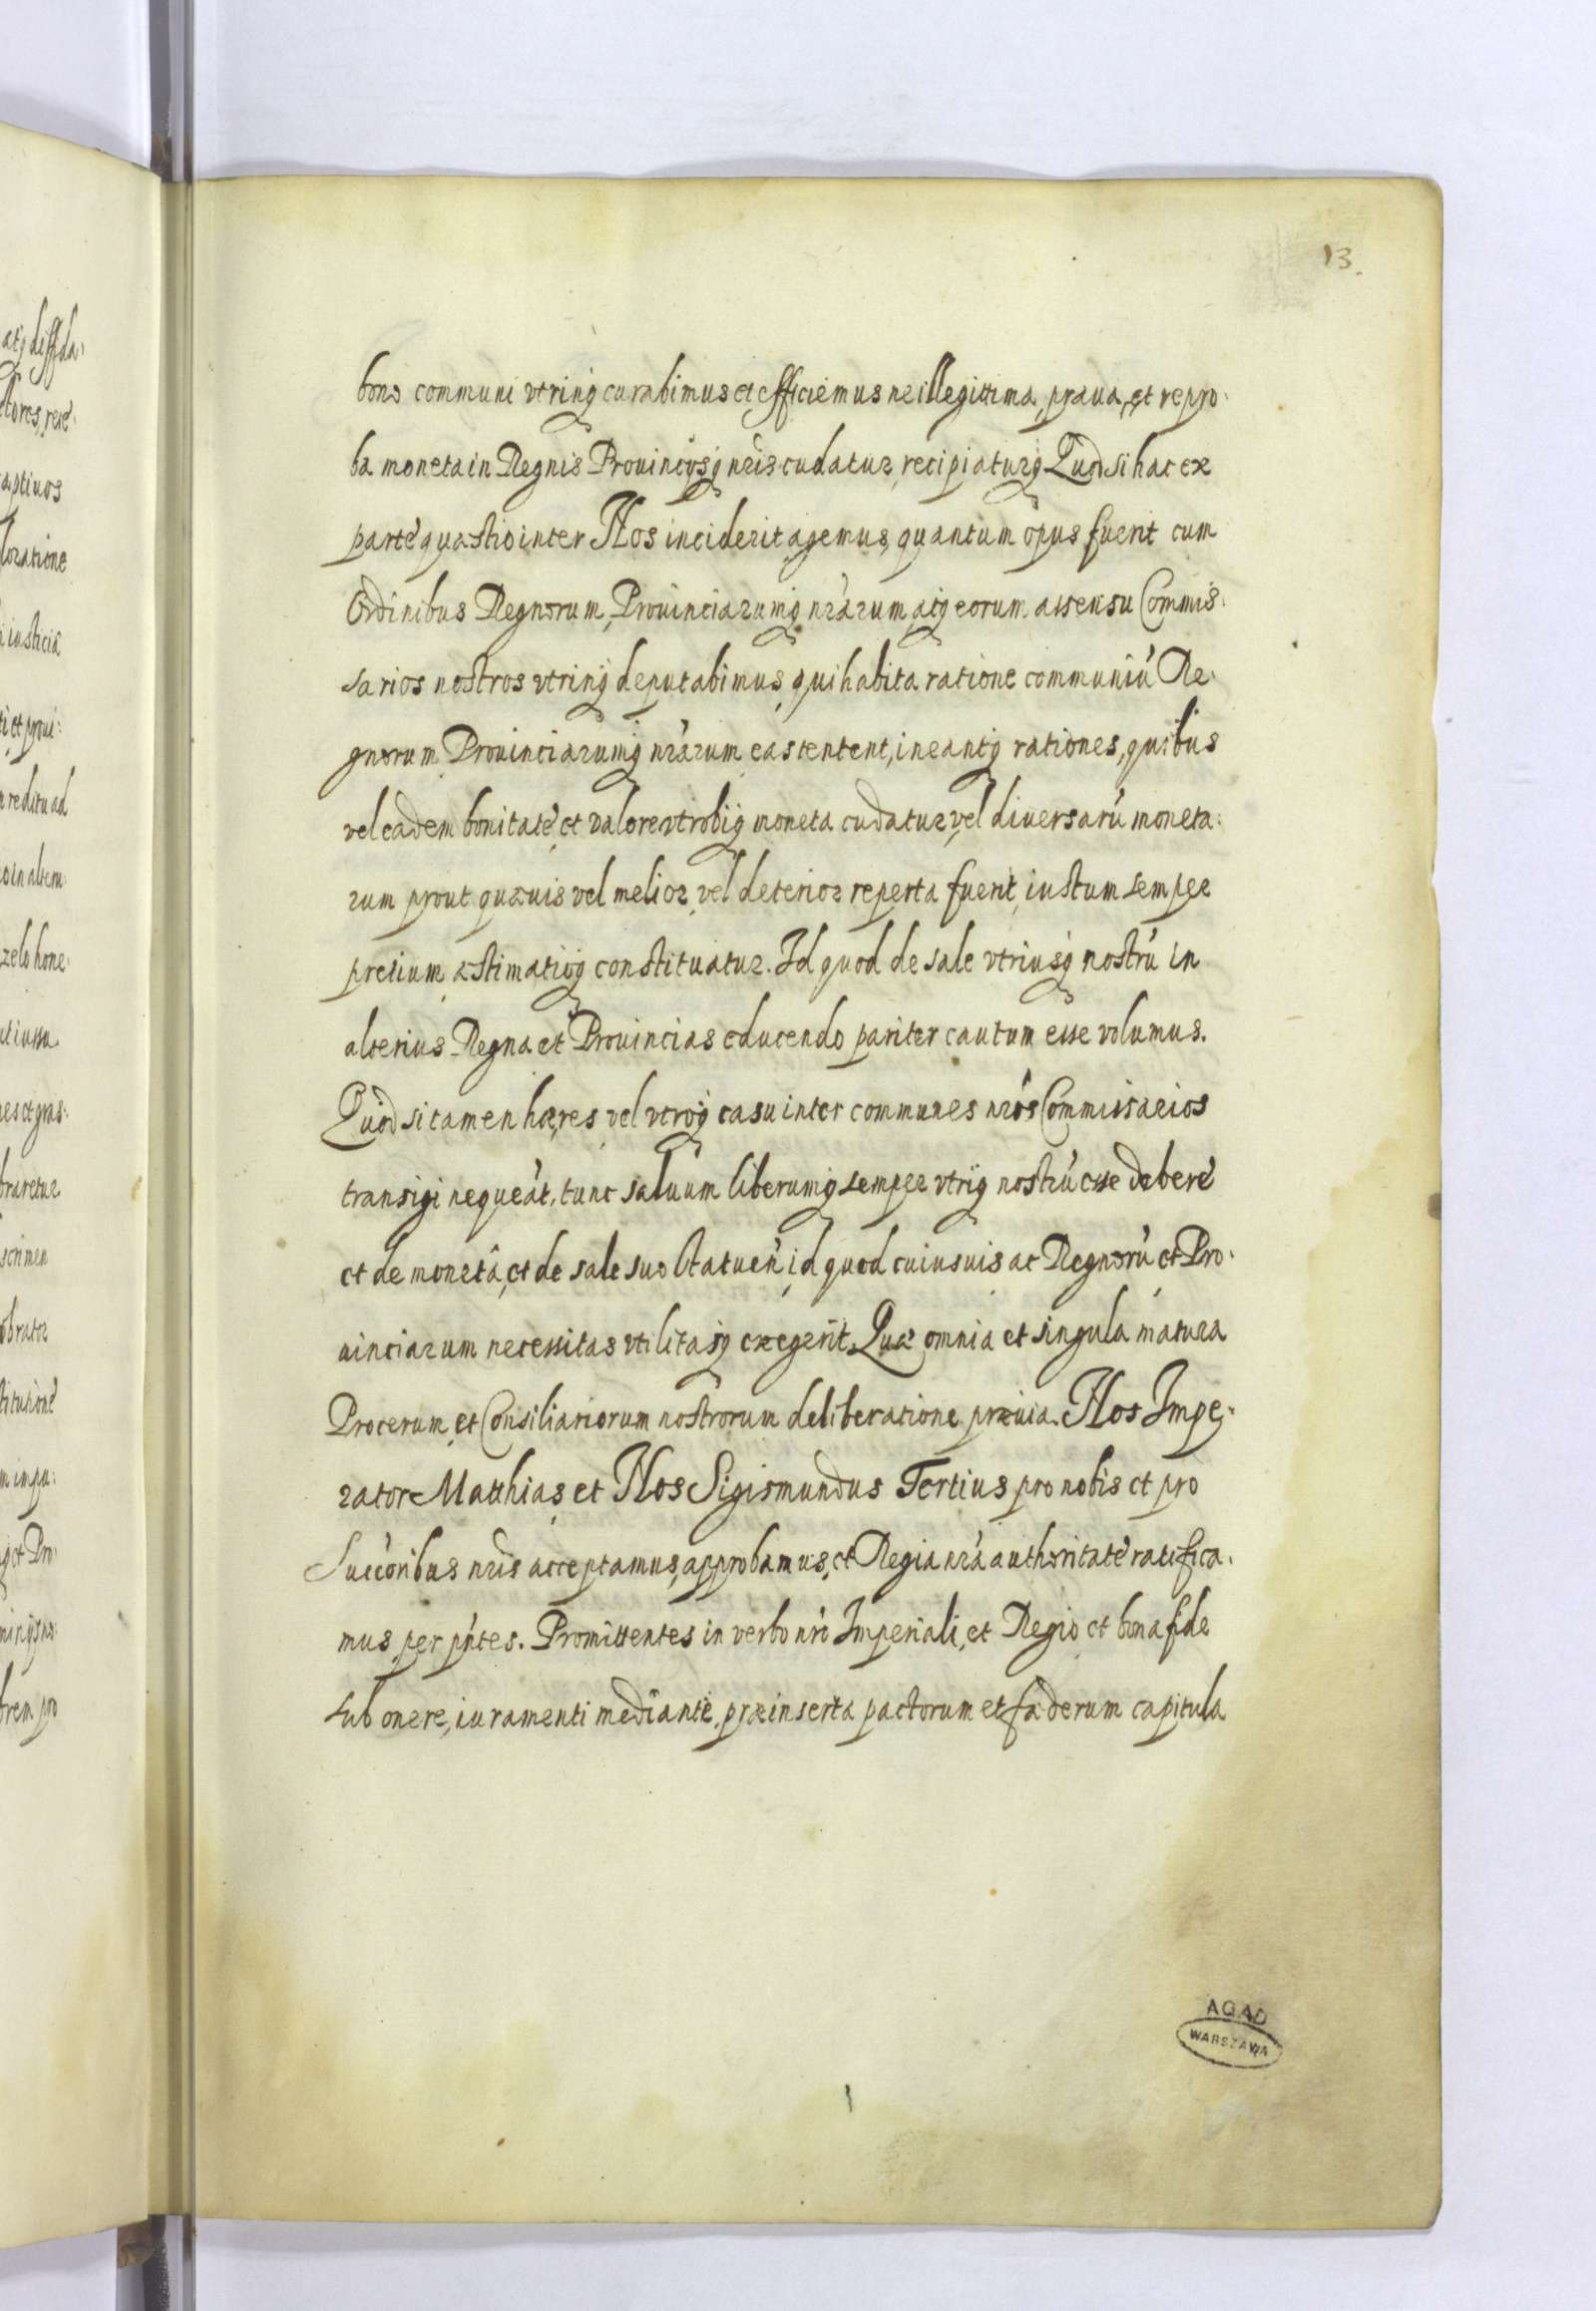 13.
bono communi vtrinq curabimus et efficiemus ne illegittima, praua, et repro:
ba moneta in Regnis Prouincijsq nris cudatur, recipiaturq Quod si hac ex
parte quæstio inter Nos inciderit agemus, quantum opus fuerit cum
Ordinibus Regnorum, Prouinciarumq nrarum, atq eorum assensu Commis:
sarios nostros vtrinq deputabimus, qui habita ratione communiu Re:
gnorum Prouinciarumq nrarum eas tentent, ineantq rationes, quibus
vel eadem bonitate, et valore vtrobiq moneta cudatur, vel diuersaru moneta:
rum prout quæuis vel melior, vel deterior reperta fuerit, iustum semper
precium æstimatioq constituatur. Id quod de sale vtriusq nostru in
alterius Regna et Prouincias educendo pariter cautum esse volumus.
Quod si tamen hæ res vel vtroq casu inter communes nros Commissarios
transigi nequeat, tunc saluum liberumq semper vtriq nostru esse debere
et de moneta, et de sale suo statuen, id quod cuiusuis ac Regnoru et Pro:
uinciarum necessitas vtilitasq exegerit. Quæ omnia et singula matura
Procerum, et Consiliariorum nostrorum deliberatione præuia. Nos Impe:
rator Matthias, et Nos Sigismundus Tertius pro nobis et pro
Succoribus nris acceptamus, approbamus, et Regia nra authoritate ratifica:
mus, per pntes. Promittentes in verbo nro Imperiali, et Regio et bona fide
sub onere, iuramenti mediante, præinserta pactorum et fæderum capitula
AGAD
WARSZAWA